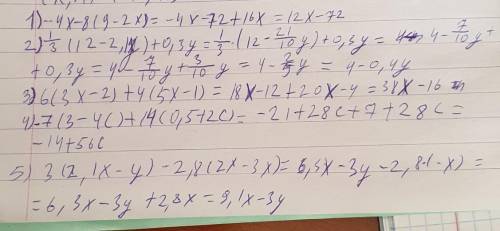 1) -4x-8(9-2x)= -4x-72+16x=12x-72
2) 1/3(12-2,1y)+0,3y=1/3·(12-21/10y)+0,3y= 4-7/10y+
+0,3y=4-7/10y+3/10y=4-2/5y=4-0,4y
3) 6(3x-2)+4(5x-1)=18x-12+20x-4=38x-16
4) -7(3-4c)+14(0,5+2c)=-21+28c+7+28c=
-14+56c
5) 3(2,1x-y)-2,8(2x-3x)=6,3x-3y-2,8·(-x)=
=6,3x-3y+2,8x=9,1x-3y